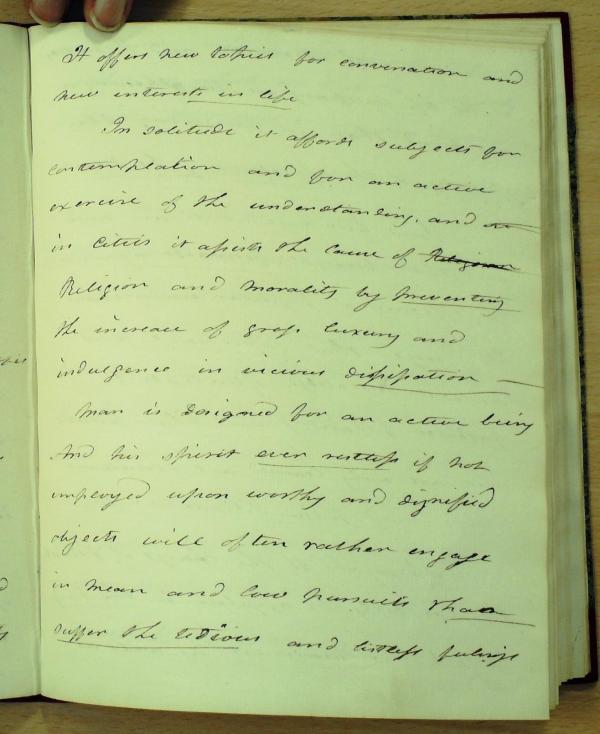 It offers new topics for conversation and
new interests in life
In solitude it affords subjects for
contemplation and for an active
exercise of the understanding, and
in cities it assists the cause of Religion
Religion and morality by preventing
the increase of gross luxury and
indulgence in vicious dissipation —
Man is designed for an active being
And his spirit ever restless if not
employed upon worthy and dignified
objects will often rather engage
in mean and low pursuits than
suffer the tedious and listless feelings